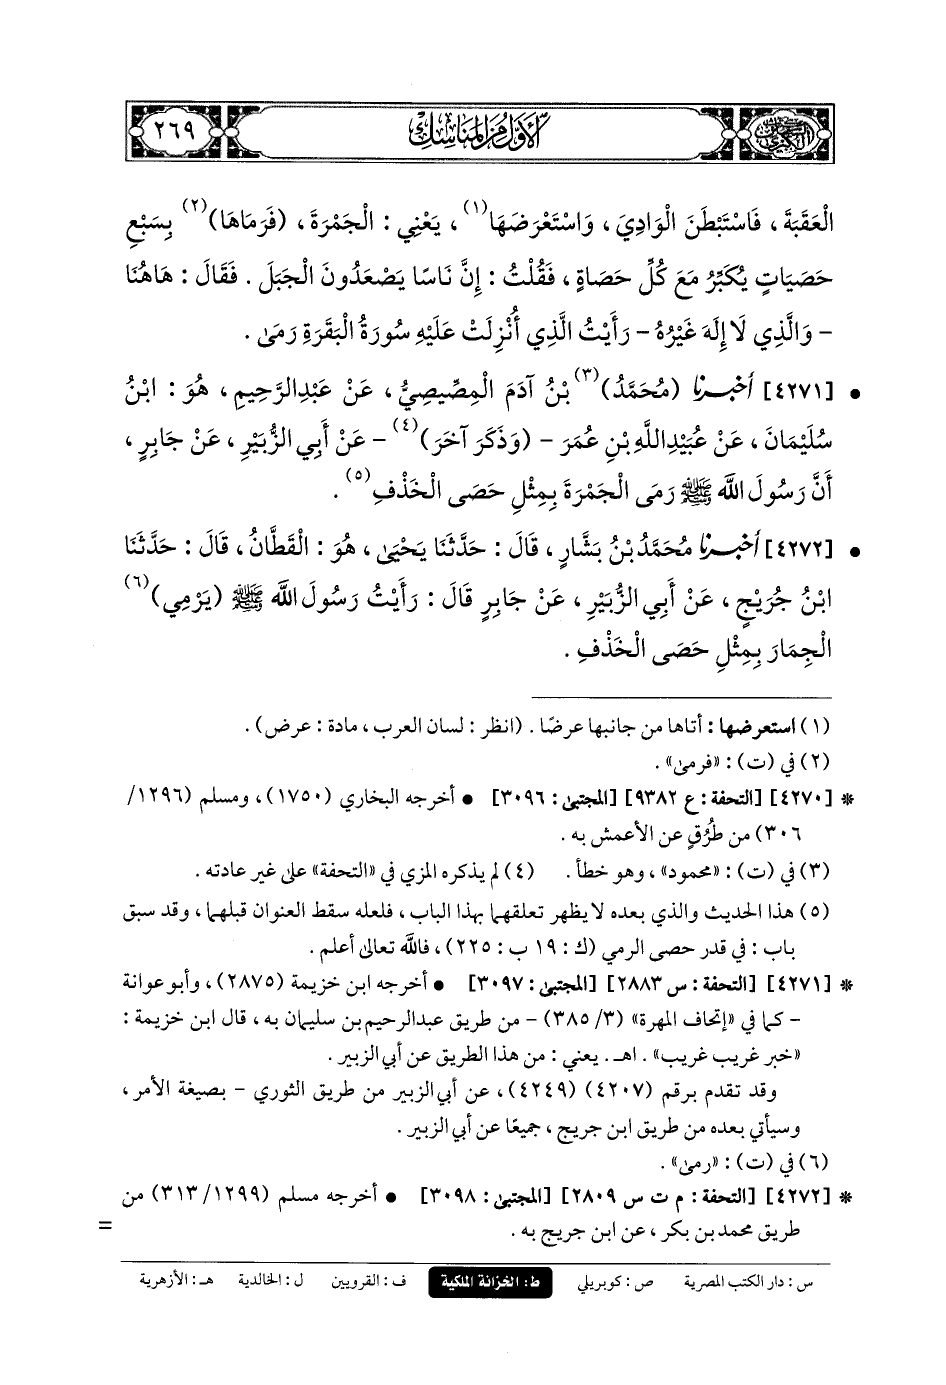 الأول من المناسك
٢٦٩
الْعَقَبَةَ ، فَاسْتَبْطَنَ الْوَادِيَ ، وَاسْتَعْرَضَهَا(١) ، يَعْنِي : الْجَمْرَةَ ، (فَرَمَاهَا)(٢) بِسَبْعِ
حَصَيَاتٍ يُكَبِّرُ مَعَ كُلِّ حَصَاةٍ ، فَقُلْتُ : إِنَّ نَاسًا يَصْعَدُونَ الْجَبَلَ . فَقَالَ : هَاهُنَا
- وَالَّذِي لَا إِلَهَ غَيْرُهُ - رَأَيْتُ الَّذِي أُنْزِلَتْ عَلَيْهِ سُورَةُ الْبَقَرَةِ رَمَىٰ .
• [٤٢٧١] أخبرنا (مُحَمَّدُ)(٣) بْنُ آدَمَ الْمِصِّيصِيُّ ، عَنْ عَبْدِالرَّحِيمِ ، هُوَ : ابْنُ
سُلَيْمَانَ ، عَنْ عُبَيْدِاللَّهِ بْنِ عُمَرَ - (وَذَكَرَ آخَرَ)(٤) - عَنْ أَبِي الزُّبَيْرِ ، عَنْ جَابِرٍ ،
أَنَّ رَسُولَ اللَّه ﷺ رَمَى الْجَمْرَةَ بِمِثْلِ حَصَى الْخَذْفِ(٥) .
• [٤٢٧٢] أخبرنا مُحَمَّدُ بْنُ بَشَّارٍ ، قَالَ : حَدَّثَنَا يَحْيَىٰ ، هُوَ : الْقَطَّانُ ، قَالَ : حَدَّثَنَا
ابْنُ جُرَيْجٍ ، عَنْ أَبِي الزُّبَيْرِ ، عَنْ جَابِرٍ قَالَ : رَأَيْتُ رَسُولَ اللَّه ﷺ (يَرْمِي)(٦)
الْجِمَارَ بِمِثْلِ حَصَى الْخَذْفِ .
(١) استعرضها : أتاها من جانبها عرضًا . (انظر : لسان العرب ، مادة : عرض) .
(٢) في (ت) : «فرمىٰ» .
* [٤٢٧٠] [التحفة : ع ٩٣٨٢] [المجتبىٰ : ٣٠٩٦] • أخرجه البخاري (١٧٥٠) ، ومسلم (١٢٩٦/
٣٠٦) من طُرُقٍ عن الأعمش به .
(٣) في (ت) : «محمود» ، وهو خطأ . (٤) لم يذكره المزي في «التحفة» على غير عادته .
(٥) هذا الحديث والذي بعده لا يظهر تعلقهما بهذا الباب ، فلعله سقط العنوان قبلهما ، وقد سبق
باب : في قدر حصى الرمي (ك : ١٩ ب : ٢٢٥) ، فاللَّه تعالى أعلم .
* [٤٢٧١] [التحفة : س ٢٨٨٣] [المجتبىٰ : ٣٠٩٧] • أخرجه ابن خزيمة (٢٨٧٥) ، وأبو عوانة
- كما في «إتحاف المهرة» (٣/ ٣٨٥) - من طريق عبدالرحيم بن سليمان به ، قال ابن خزيمة :
«خبر غريب غريب» . اهـ . يعني : من هذا الطريق عن أبي الزبير .
وقد تقدم برقم (٤٢٠٧) (٤٢٤٩) ، عن أبي الزبير من طريق الثوري - بصيغة الأمر ،
وسيأتي بعده من طريق ابن جريج ، جميعًا عن أبي الزبير .
(٦) في (ت) : «رمىٰ» .
* [٤٢٧٢] [التحفة : م ت س ٢٨٠٩] [المجتبىٰ : ٣٠٩٨] • أخرجه مسلم (١٢٩٩/ ٣١٣) من
طريق محمد بن بكر ، عن ابن جريج به . =
س : دار الكتب المصرية ص : كوبريلي ط : الخزانة الملكية ف : القرويين ل : الخالدية هـ : الأزهرية